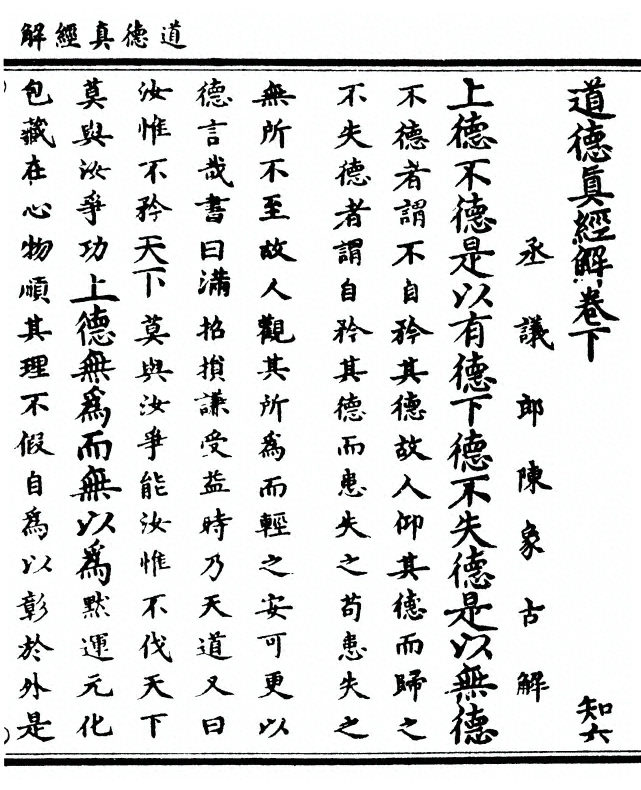 道德真經解
道德眞經解卷下
知六
丞議郎陳象古解
上德不德是以有德下德不失德是以無德
不德者謂不自矜其德故人仰其德而歸之
不失德者謂自矜其德而患失之苟患失之
無所不至故人觀其所爲而輕之安可更以
德言哉書曰滿招損謙受益時乃天道又曰
汝惟不矜天下莫與汝爭能汝惟不伐天下
莫與汝爭功上德無爲而無以爲默運元化
包藏在心物順其理不假自爲以彰於外是